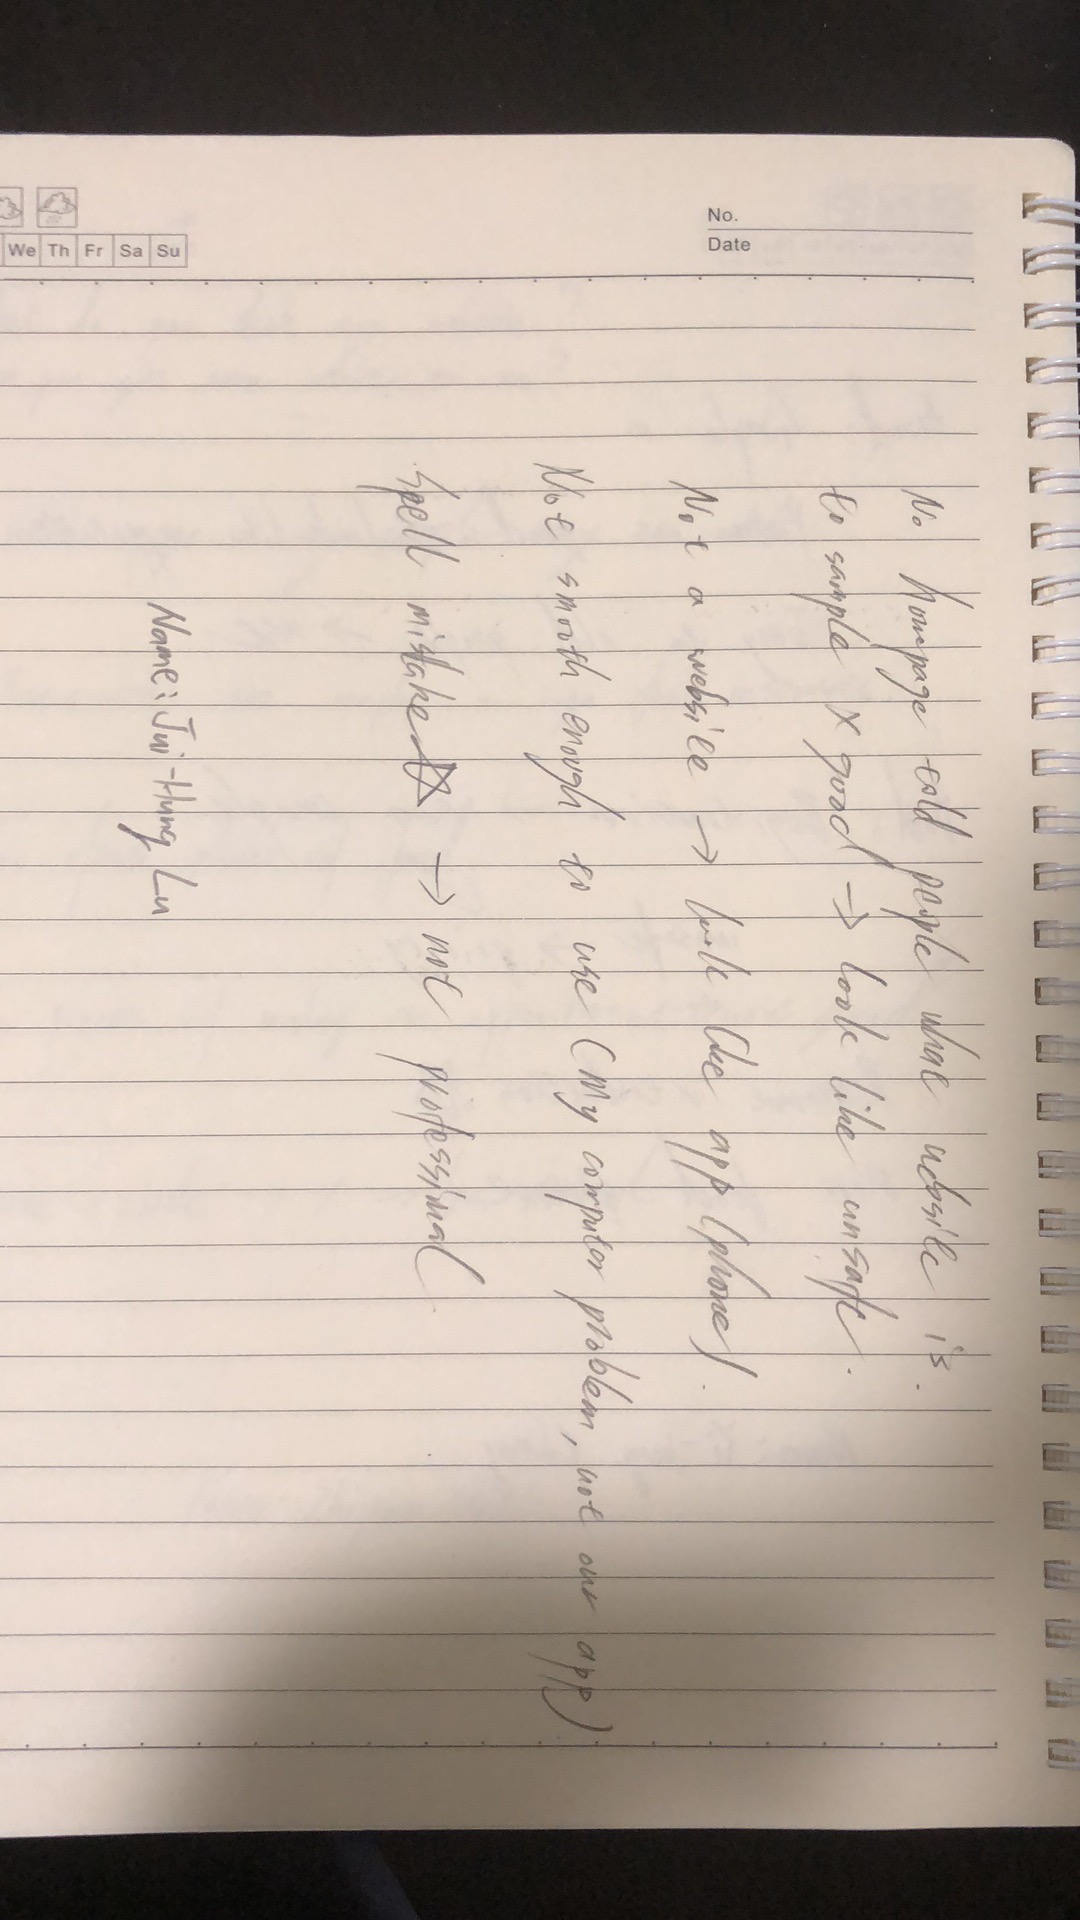 No.
Date
We Th Fr Sa Su
No hompage told people what website is.
to sample X good → look like unsafe.
Not a website → look like app (phone).
Not smooth enough to use (My computer problem, not our app)
Spell mistake → not professional
Name: Jui-Hung Lu